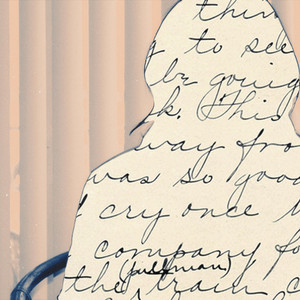 thin
g to see
be going
k. This
way fro
was so good
cry once
company fo
(pullman)
the train